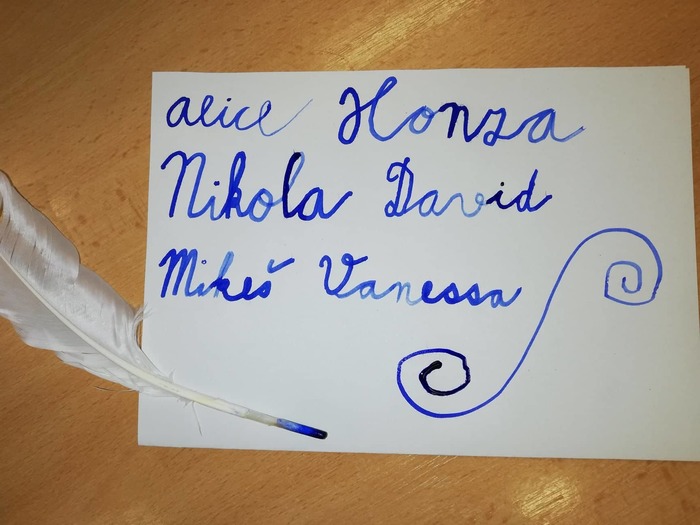 alice Honza
Nikola David
Mikeš Vanessa